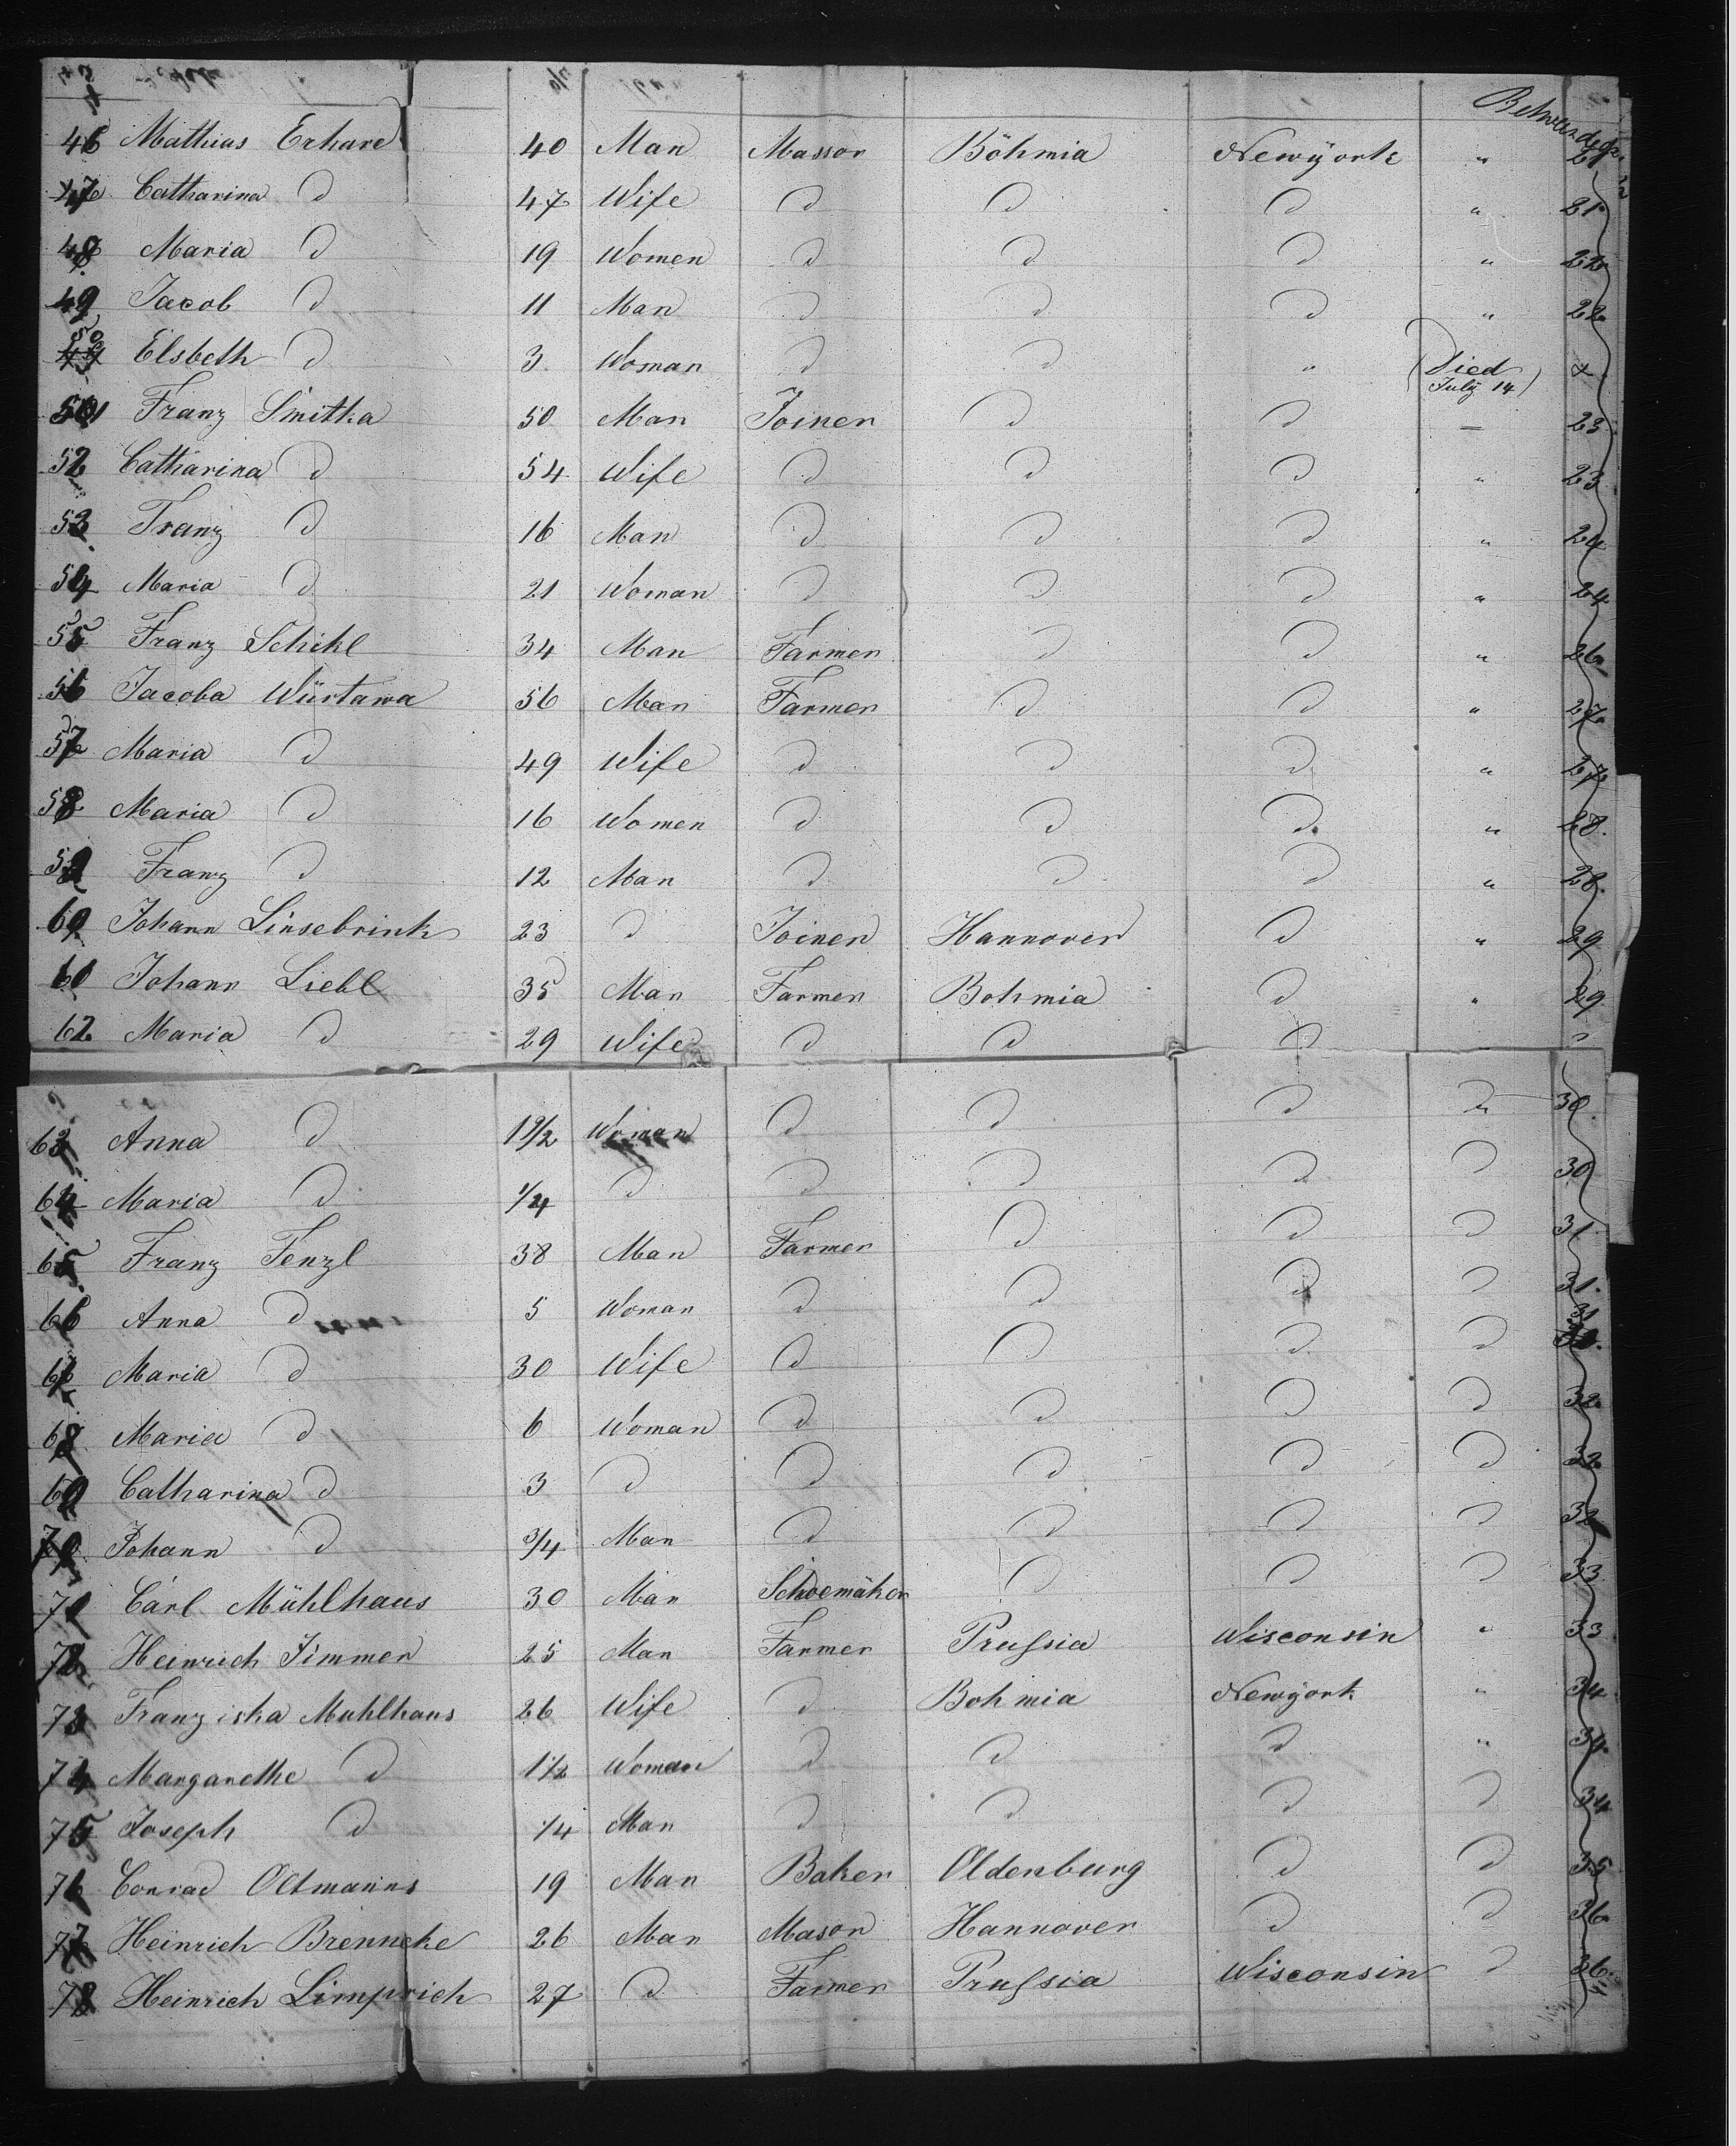 Between decks
46 Mathias Erhard 40 Man Massor Böhmia Newÿork " 21
47 Catharina d 47 Wife d d d " 21
48 Maria d 19 Women d d d " 22
49 Jacob d 11 Man d d d " 22
50 Elsbeth d 3 Woman d d " (Died July 14) x
51 Franz Smitka 50 Man Joiner d d — 23
52 Catharina d 54 Wife d d d " 23
53 Franz d 16 Man d d d " 24
54 Maria d 21 Woman d d d " 24
55 Franz Schikl 34 Man Farmer d d " 26
56 Jacoba Würtawa 56 Man Farmer d d " 27
57 Maria d 49 Wife d d d " 27
58 Maria d 16 Women d d d " 28
59 Franz d 12 Man d d d " 28
60 Johann Linsebrink 23 d Joiner Hannover d " 29
61 Johann Liebl 35 Man Farmer Bohmia d " 29
62 Maria d 29 Wife d d d
63 Anna d Woman d d d " 30
64 Maria d 1/4 d d d d d 30
65 Franz Fenzl 38 Man Farmer d d d 31
66 Anna d 5 Woman d d d d 31
67 Maria d 30 Wife d d d d 31
68 Maria d 6 Woman d d d d 32
69 Catharina d 3 d d d d d 32
70 Johann d 3/4 Man d d d d 32
71 Carl Mühlhaus 30 Man Schoemäker d d d 33
72 Heinrich Timmer 25 Man Farmer Prussia Wisconsin " 33
73 Franziska Muhlhaus 26 Wife d Bohmia Newÿork " 34
74 Margarethe d 1 1/2 Woman d d d " 34
75 Joseph d 1/4 Man d d d d 34
76 Conrad Oltmanns 19 Man Baker Oldenburg d d 35
77 Heinrich Brennecke 26 Man Mason Hannover d d 36
78 Heinrich Limprich 27 d Farmer Prussia Wisconsin d 36